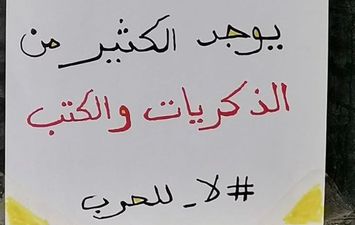 يوجد الكثير من
الذكريات والكتب
#لا_للحرب